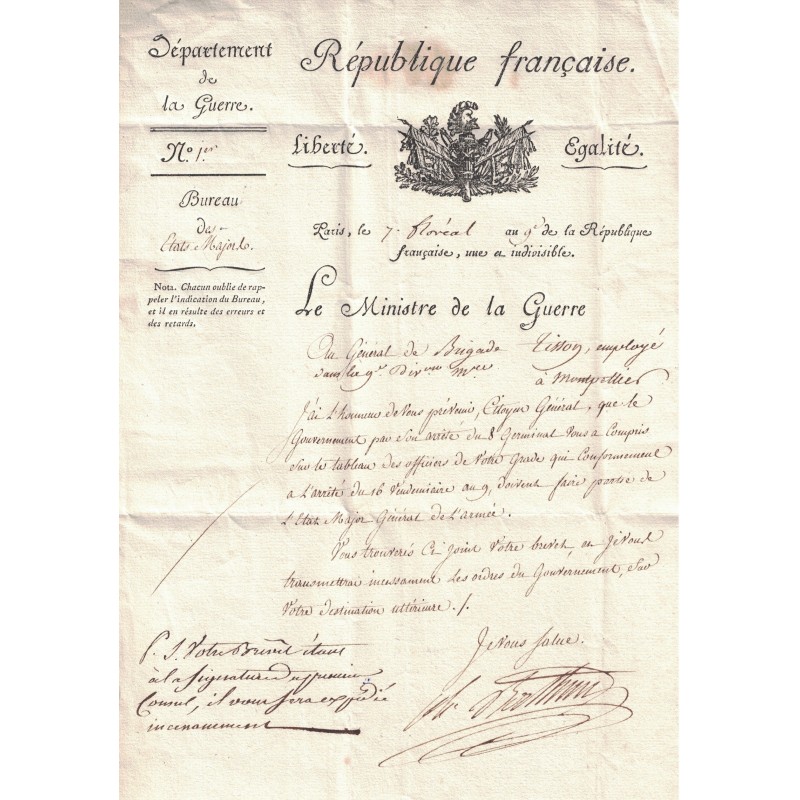 Département
de
la Guerre.
N.º 1er
Bureau
des
Etats-Majors.
Nota. Chacun oublie de rap-
peler l'indication du Bureau,
et il en résulte des erreurs et
des retards.
République française.
Liberté.
Egalité.
Paris, le 7. floréal au 9e de la République
française, une et indivisible.
Le Ministre de la Guerre
Au Général de Brigade Tisson, employé
dans la 9e Divon Mre à Montpellier
J'ai L'honneur de Vous prévenir, Citoyen Général, que le
Gouvernement par Son arrêté du 8 Germinal Vous a Compris
Sur le tableau des officiers de Votre Grade qui Conformement
a L'arrêté du 16 Vendemiaire au 9, doivent faire partie de
L'Etat Major Général de L'armée.
Vous trouverés Ci joint Votre brevet, et Je Vous
transmettrai incessament Les ordres du Gouvernement, Sur
Votre destination ultérieure ./.
Je Vous Salue.
P. S. Votre Brevet étant
à la Signature du premier
Consul, il vous sera expédié
incessamment
Alex Berthier